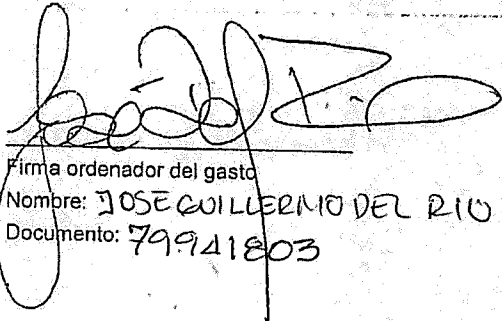 Firma ordenador del gasto
Nombre: JOSE GUILLERMO DEL RIO
Documento: 79941803